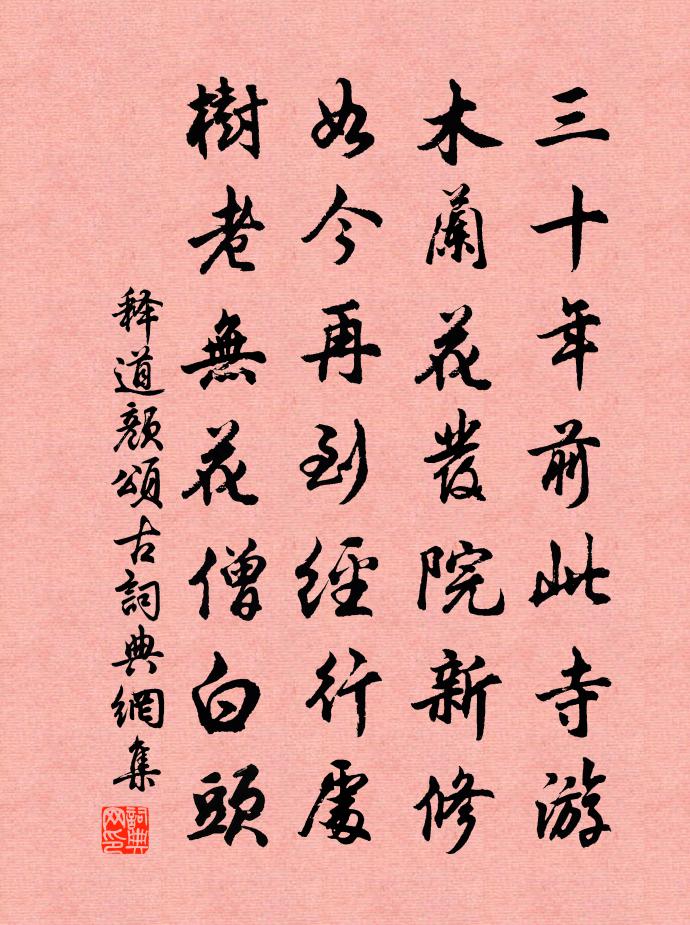 三十年前此寺游
木蘭花發院新修
如今再到經行處
樹老無花僧白頭
释道颜頌古詞典網集
詞典网印